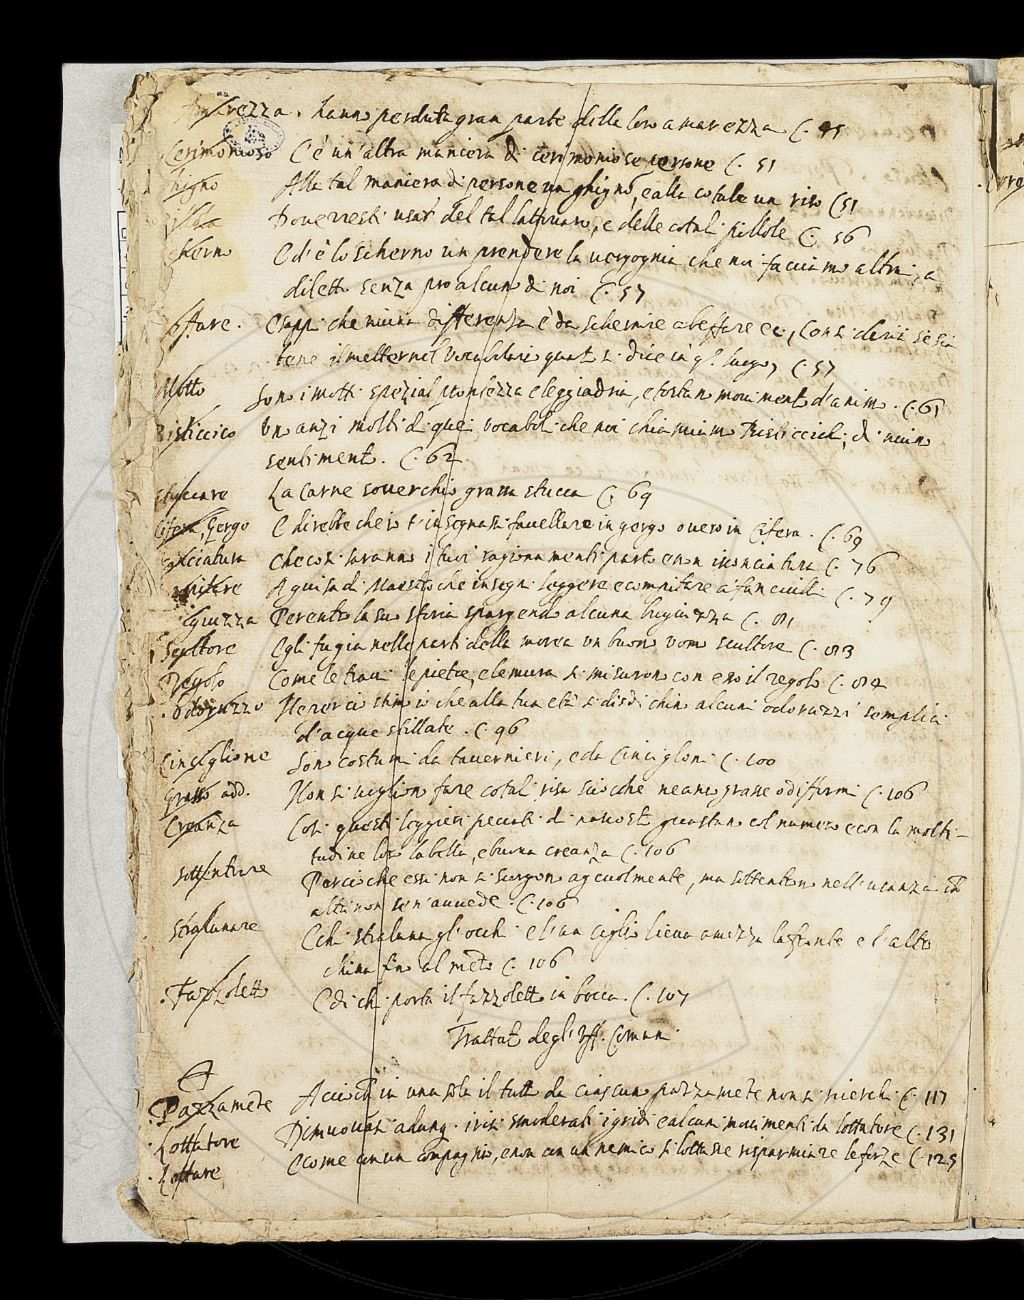 hanno perduta gran parte della loro amarezza C. 45
Cerimonioso C'è un'altra maniera di cerimoniose persone C. 51
Ghigno Alla tal maniera di persone un ghigno, e alla cotale un riso C. 51
Doverresti usar del tal lattovaro, e delle cotali pillole C. 56
scherno Ed è lo scherno un prendere la vergogna che noi facciamo altrui, a
diletto senza pro alcuno di noi C. 57
E sappi che niuna differenza è da schernire a beffare
bene il metter nel Vocabolario quanto si dice in q.to luogo, C. 57
Motto Sono i motti spezial prontezza e leggiadria, e tostano movimento d'animo. C. 61
Bisticcico Una anzi molti di quei vocaboli che noi chiamiamo Bisticcichi, di niun
sentimento. C. 62
stuccare La Carne soverchio grassa stucca C. 69
Cifera, Gergo E direbbe che io t'insegnassi favellare in gergo overo in Cifera. C. 69
che così saranno i tuoi ragionamenti parto e non isconciatura C. 76
A guisa di Maestro che insegni leggere e compitare a' fanciulli C. 79
Perentro la sua storia spargendo alcuna bugiuzza C. 81
Scultore Egli fu già nelle parti della morea un buono uomo scultore C. 83
Regolo Come le travi le pietre, e le mura si misurono con esso il regolo C. 84
Odoruzzo Ne perciò stimo io che alla tua età si disdichino alcuni odoruzzi semplici
d'acque stillate. C. 96
Cinciglione Son costumi da tavernieri, e da Cinciglioni C. 100
Grasso add. Non si vogliono fare cotali risa sciocche ne anco grasse o difformi C. 106
Creanza Così questi leggieri peccati di nascosto guastano col numero e con la molti-
tudine loro la bella, e buona creanza C. 106
sottentrare Perciò che essi non si scorgono agevolmente, ma sottentrano nell'usanza ch
altri non se n'avvede. C. 106
stralunare E chi straluna gl'occhi e l'un ciglio lieva a mezza la fronte e l'altro
china fino al mento C. 106
Fazzoletto E di chi porta il fazzoletto in bocca. C. 107
Trattato degl'Uff. Comuni
Pazzamente Acciochè in una sola il tutto da ciascuno pazzamente non si ricerchi C. 117
Lottatore Dimuovansi adunq. i risi smoderati i gridi e alcuni movimenti da lottatore C. 131
Lottare E come con un compagno, e non con un nemico si lotta se risparmiare le forze C. 125